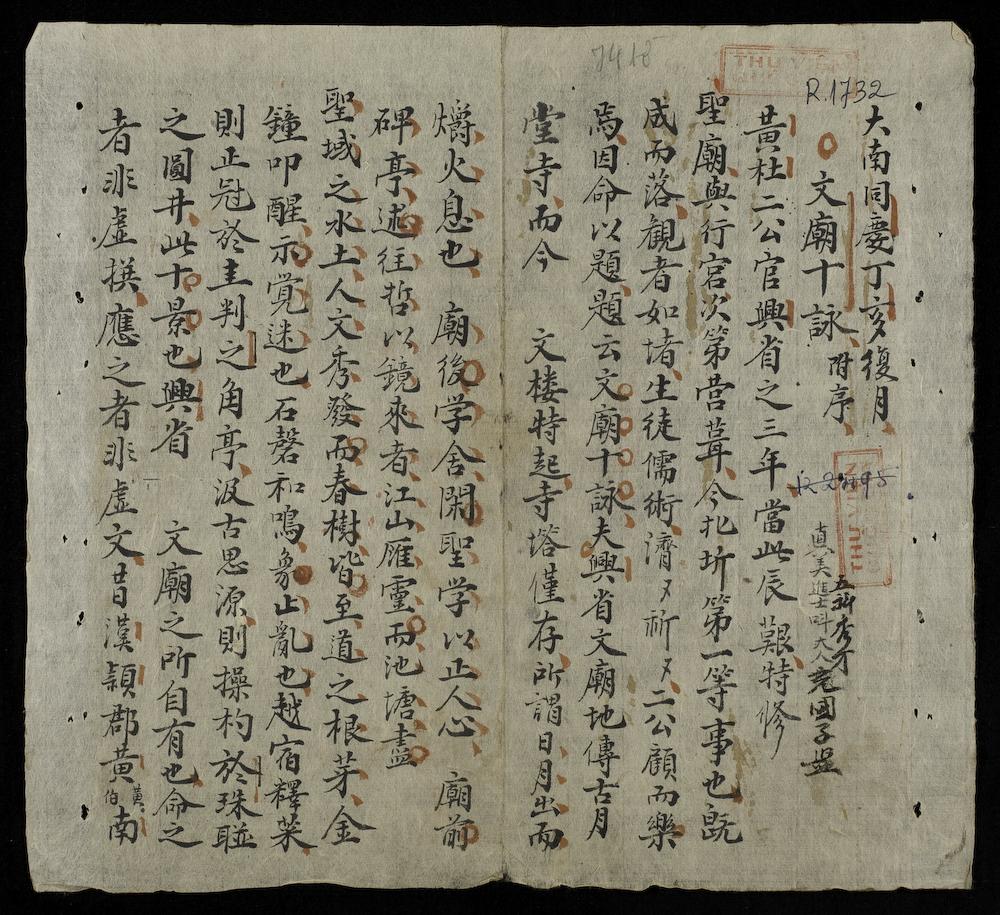 7418
THU VIỆN
R.1732
大南同慶丁亥復月
文廟十詠附序
真美進士科大人
五科秀才
國子監
R 2
THU VIỆN
黃杜二公官興省之三年當此辰艱特修
聖廟與行宮次第营葺今北圻第一等事也既
成而落観者如堵生徒儒術濟〻祈〻二公顧而樂
焉因命以題題云文廟十詠夫興省文廟地傳古月
堂寺而今 文楼特起寺塔僅存所謂日月出而
爝火息也 廟後学舍閑聖学以止人心 廟前
碑亭述往哲以鏡來者江山雁靈而池塘盡
聖域之水土人文秀發而春樹皆至道之根芽金
鐘叩醒示覺迷也石磬和鳴象止亂也越宿釋菜
則正冠於圭判之角亭汲古思源則操杓於珠聯
之圓井此十景也興省 文廟之所自有也命之
者非虚撰應之者非虚文昔漢穎郡黃黃伯南